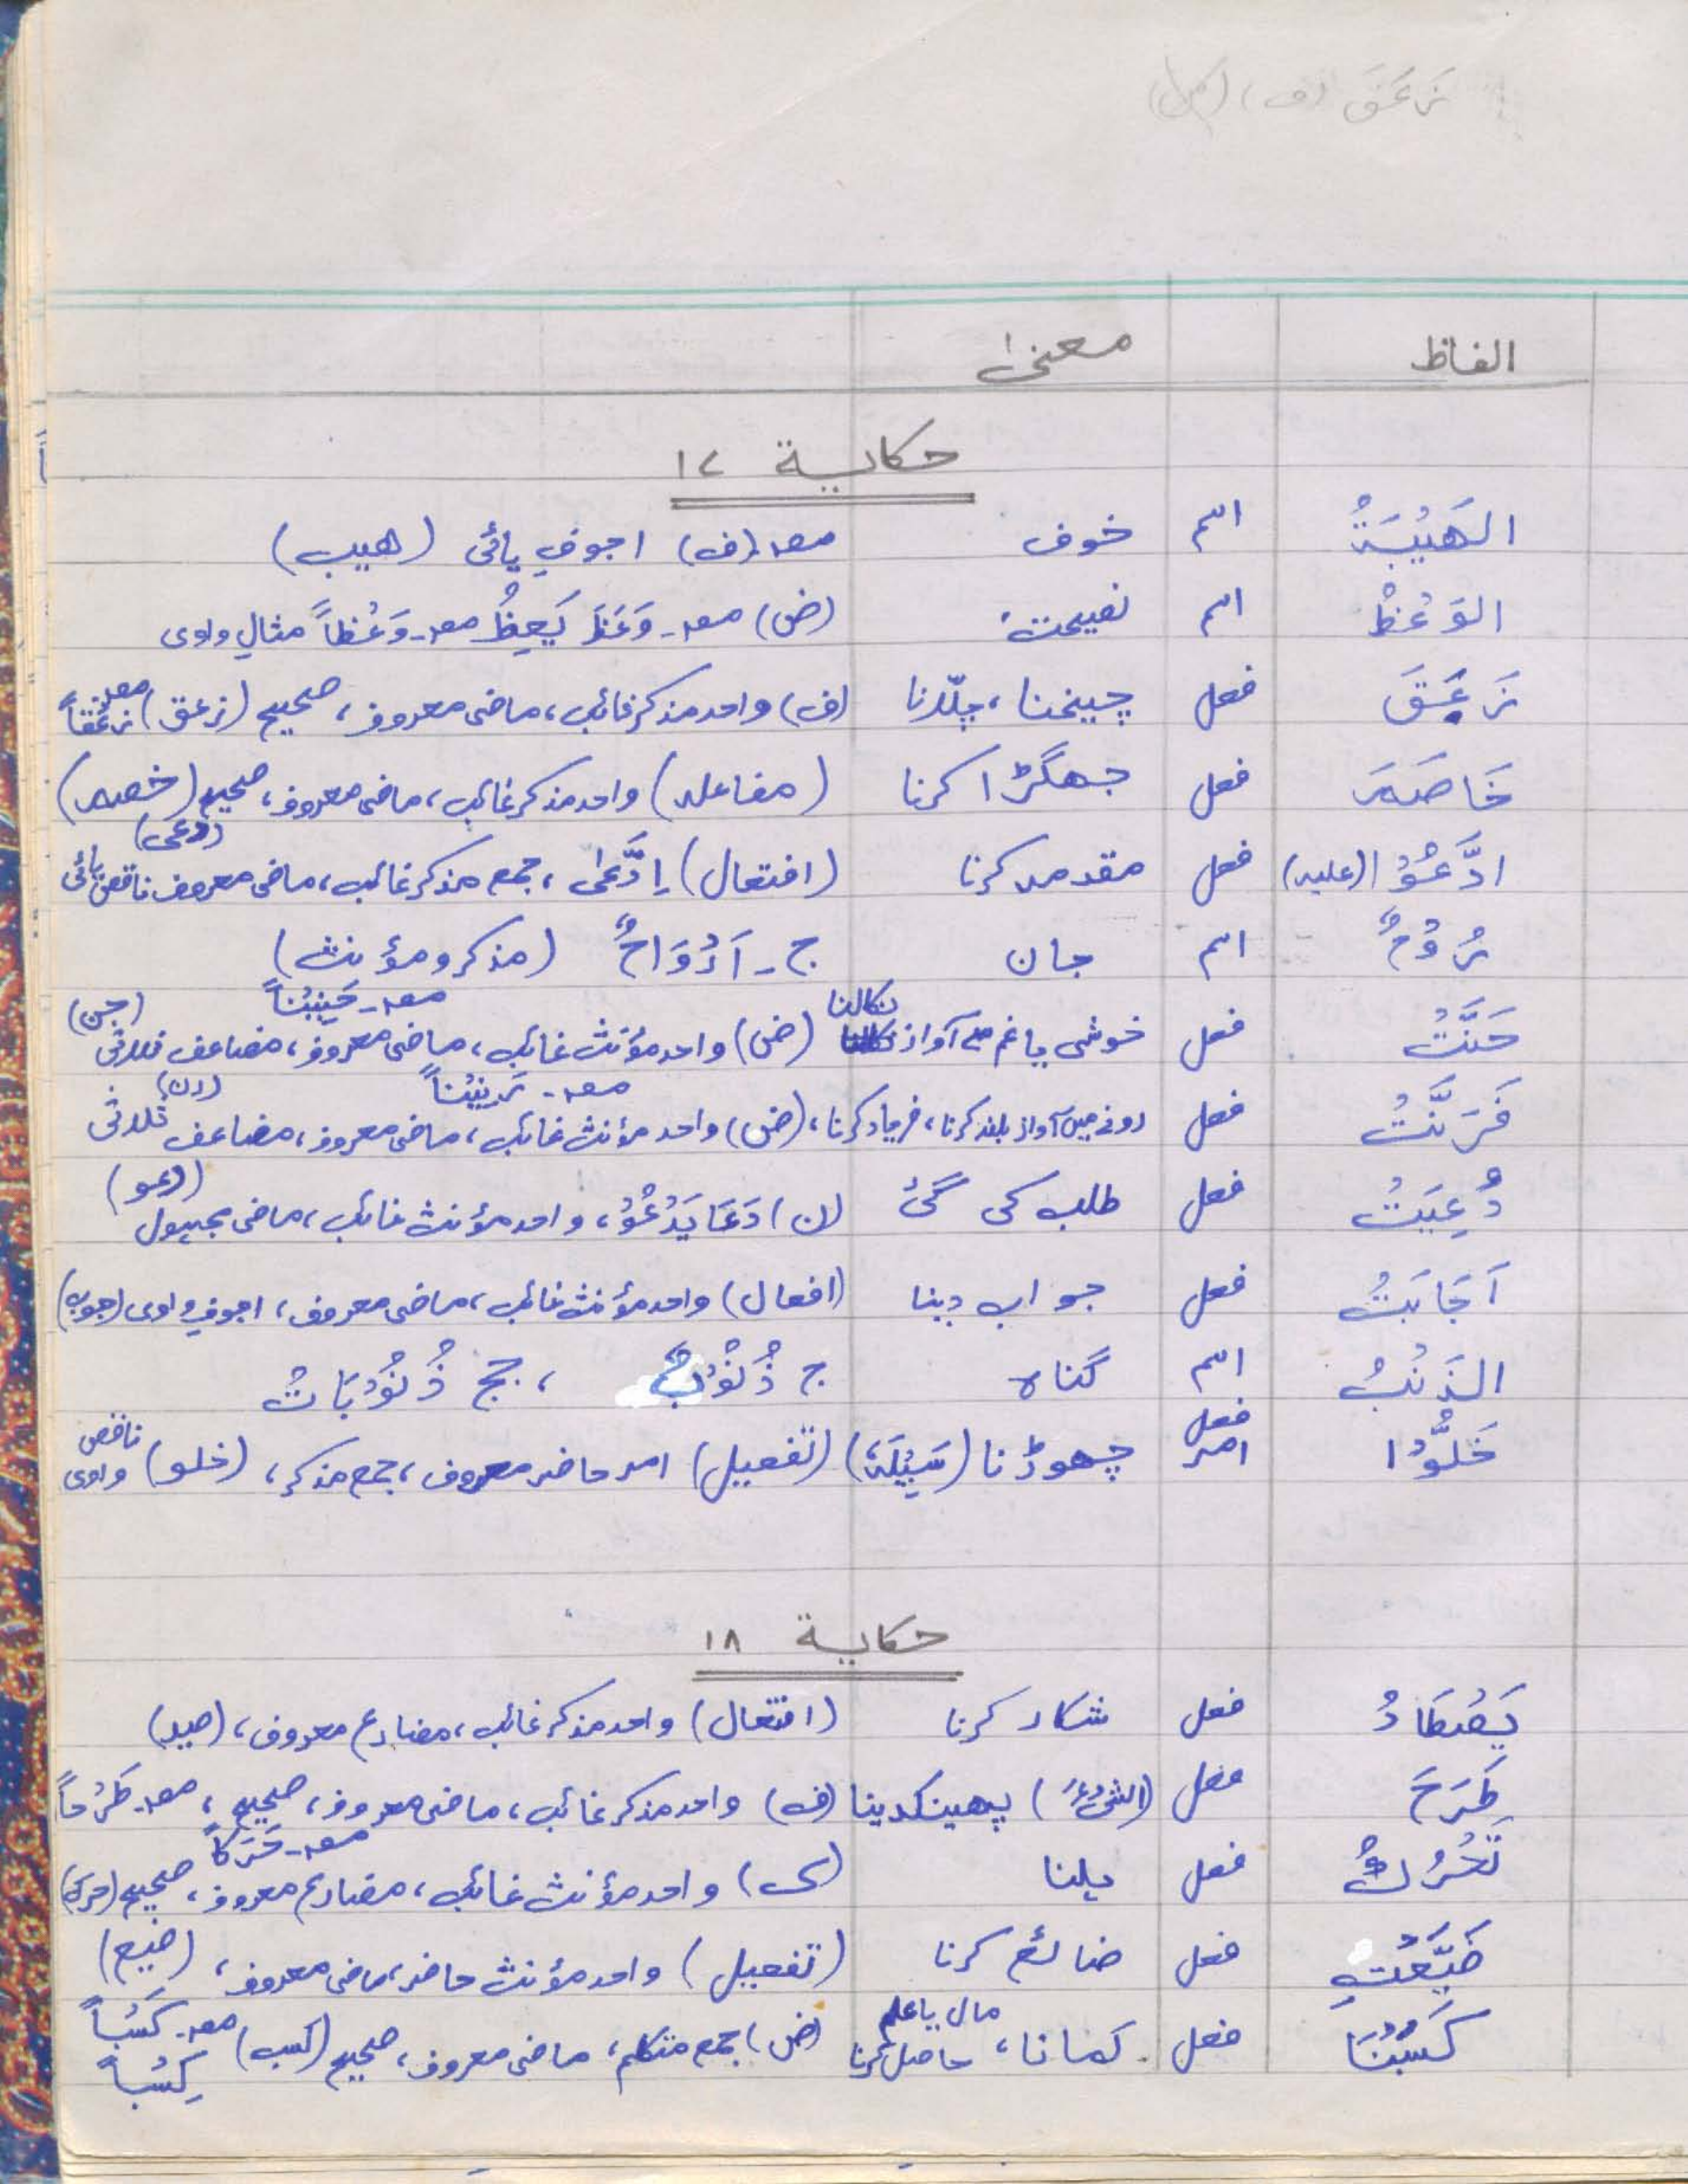 زَعَقَ (ف)
الفاظ معنیٰ
حکایة ۱۷
الھَیْبَةُ اسم خوف مصـ (ف) اجوفِ یائی (ھیب)
الوَعْظُ اسم نصیحت (ض) مصـ۔ وَعَظَ یَعِظُ مصـ۔ وَعْظاً مثالِ واوی
زَعَقَ فعل چیخنا، چلّانا (ف) واحد مذکر غائب، ماضی معروف، صحیح (زعق) مصـ زَعْقاً
خَاصَمَ فعل جھگڑا کرنا (مفاعلہ) واحد مذکر غائب، ماضی معروف، صحیح (خصم)
ادَّعَوْا (علیہ) فعل مقدمہ کرنا (افتعال) اِدَّعٰی، جمع مذکر غائب، ماضی معروف ناقص یائی (دعی)
رُوْحٌ اسم جان ج۔ اَرْوَاحٌ (مذکر ومؤنث)
حَنَّتْ فعل خوشی یا غم سے آواز نکالنا (ض) واحد مؤنث غائب، ماضی معروف، مضاعف ثلاثی مصـ۔ حَنِیْناً (حن)
فَرَنَّتْ فعل رونے میں آواز بلند کرنا، فریاد کرنا، (ض) واحد مؤنث غائب، ماضی معروف، مضاعف ثلاثی مصـ۔ رَنِیْناً (رن)
دُعِیَتْ فعل طلب کی گئی (ن) دَعَا یَدْعُوْ، واحد مؤنث غائب، ماضی مجہول (دعو)
اَجَابَتْ فعل جواب دینا (افعال) واحد مؤنث غائب، ماضی معروف، اجوفِ واوی (جوب)
الذَنْبُ اسم گناہ ج ذُنُوْبٌ، جج ذُنُوْبَاتٌ
خَلُّوْا فعل امر چھوڑنا (سَبِیْلَهٗ) (تفعیل) امر حاضر معروف، جمع مذکر، (خلو) ناقص واوی
حکایة ۱۸
یَصْطَادُ فعل شکار کرنا (افتعال) واحد مذکر غائب، مضارع معروف، (صید)
طَرَحَ فعل (الشیْءَ) پھینکدینا (ف) واحد مذکر غائب، ماضی معروف، صحیح، مصـ۔ طَرْحاً
تَحْرُكُ فعل ہلنا (ک) واحد مؤنث غائب، مضارع معروف، صحیح (حرک) مصـ۔ حَرَکاً
ضَیَّعْتِ فعل ضائع کرنا (تفعیل) واحد مؤنث حاضر، ماضی معروف، (ضیع)
کَسَبْنَا فعل کمانا، مال یا علم حاصل کرنا (ض) جمع متکلم، ماضی معروف، صحیح (کسب) مصـ۔ کَسْباً کِسْباً